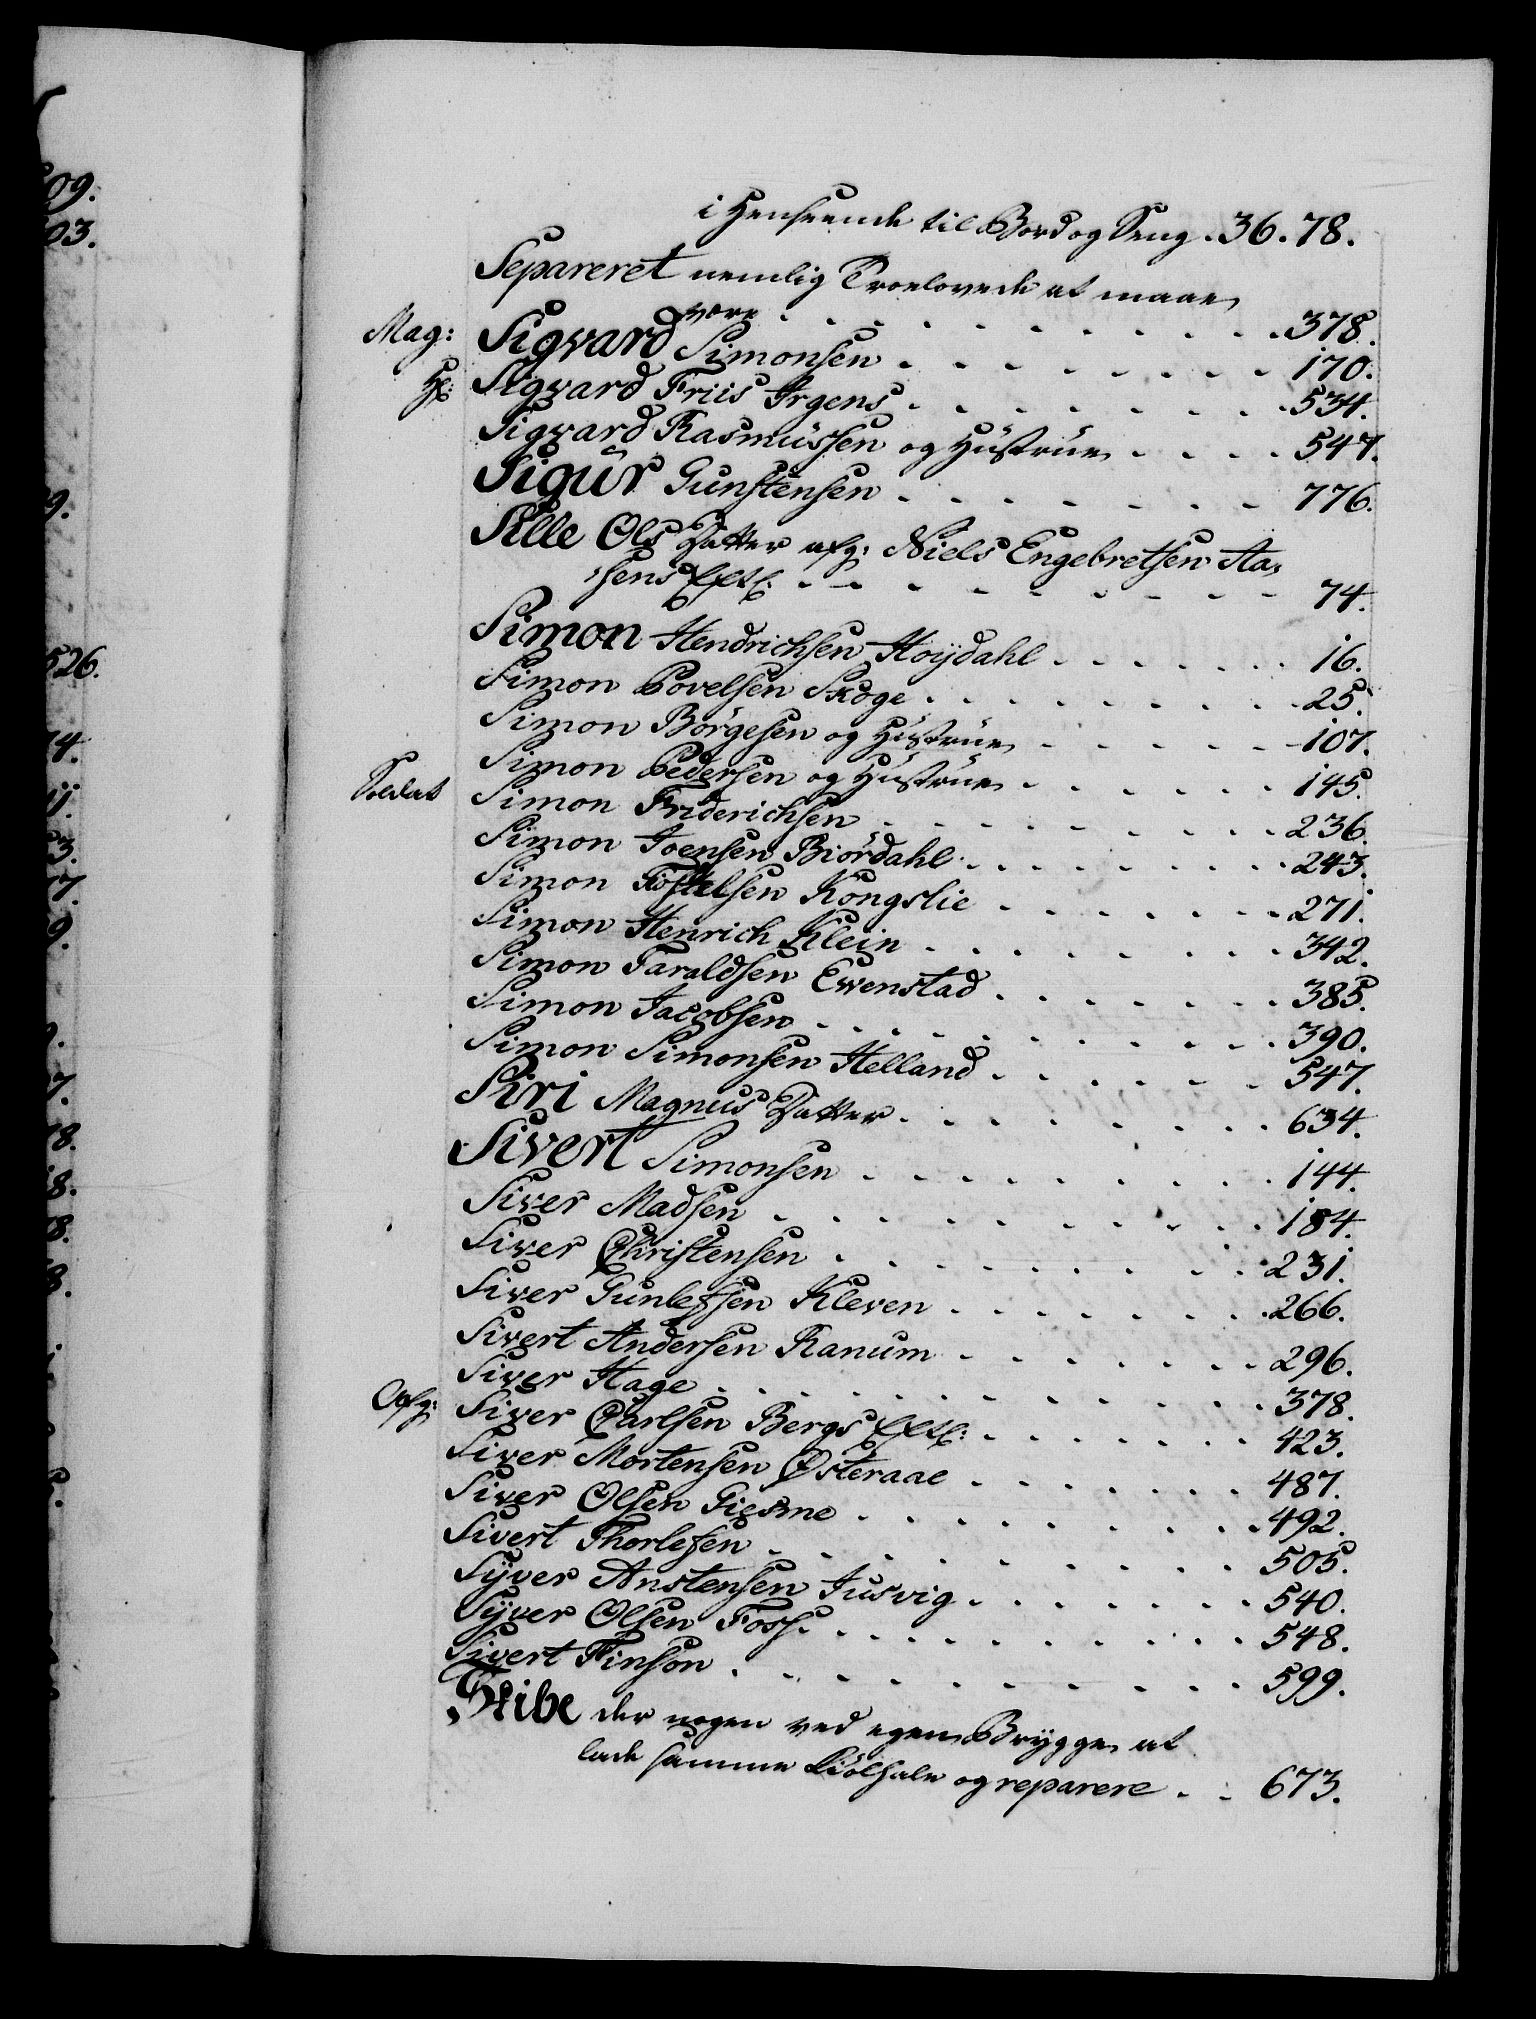 i Henseende til Bord og Seng . 36. 78.
Separeret nemlig Troelovede at maae
være . . . . . . . . . . 378.
Mag: Sigvard Simonsen . . . . . . . 170.
Hr: Sigvard Friis Irgens . . . . . . . 534.
Sigvard Rasmussen og Hustrue . . . . 547.
Sigur Gunstensen . . . . . . . 776.
Sille Ols Datter afg: Niels Engebretsen Aa,
sens Eftl: . . . . . . . . . 74.
Simon Hendrichsen Høydahl . . . . . . 16.
Simon Povelsen Skoge . . . . . . . . 25.
Simon Børgesen og Hustrue . . . . . . 107.
Simon Pedersen og Hustrue . . . . . . 145.
Soldat Simon Friderichsen . . . . . . . . 236.
Simon Joensen Biørdahl . . . . . . . . 243.
Simon Tostelsen Kongslie . . . . . . . 271.
Simon Henrich Klein . . . . . . . . 342.
Simon Taraldsen Evenstad . . . . . . . 385.
Simon Jacobsen . . . . . . . . . . 390.
Simon Simonsen Helland . . . . . . 547.
Siri Magnus Datter . . . . . . . . 634.
Sivert Simonsen . . . . . . . . . 144.
Siver Madsen . . . . . . . . . . 184.
Siver Christensen . . . . . . . . . 231.
Siver Gunlefsen Kleven . . . . . . . 266.
Sivert Andersen Ranum . . . . . . . 296.
Siver Hage . . . . . . . . . . . 378.
Afg: Siver Carlsen Bergs Eftl: . . . . . . 423.
Siver Mortensen Østeraae . . . . . . 487.
Siver Olsen Giesme . . . . . . . . 492.
Sivert Thorlefsen . . . . . . . . . 505.
Syver Anstensen Jusvig . . . . . . . 540.
Syver Olsen Foss . . . . . . . . . . 548.
Sivert Finson . . . . . . . . . . 599.
Skibe der nogen ved egen Brygge at
lade samme kiølhale og reparere . . 673.